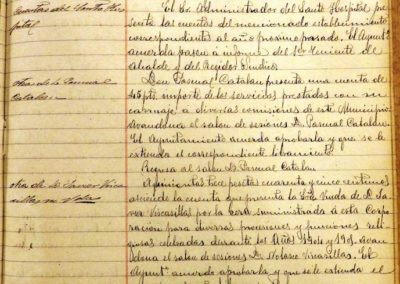 Cuentas del Santo Hos-
pital
El Sr. Administrador del Santo Hospital, pre-
senta las cuentas del mencionado establecimiento
correspondientes al año proximo pasado. El Ayunt.º
acuerda pasen a informe del 1er Teniente de
Alcalde y del Regidor Sindico
otra de D. Pascual
Catalan
Don Pascual Catalan presenta una cuenta de
45 pts. importe de los servicios prestados con su
carruaje a diversas comisiones de este Municipio
abandona el salon de sesiones D. Pascual Catalan.
El Ayuntamiento acuerda aprobarla y que se le
extienda el correspondiente libramiento.
Regresa al salon D. Pascual Catalan
otra de D. Javier Visca-
sillas
A quinientas pesetas cuarenta y cinco centimos
asciende la cuenta que presenta la Sra. Viuda de D. Ja-
vier Viscasillas por la cera suministrada a esta Corpo-
racion para diversas procesiones y funciones reli-
giosas celebradas durante los Años 1904 y 1905. aban-
dona el salon de sesiones D. Viscasillas. El
Ayunt.º acuerda aprobarla y que se le extienda el